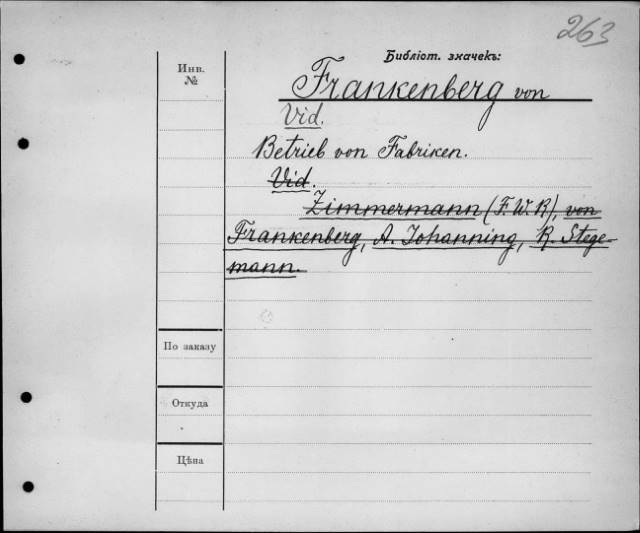 263
Библіот. значекъ:
Инв.
№
Frankenberg von
Vid.
Betrieb von Fabriken.
Vid.
Zimmermann (F. W. R), von
Frankenberg, A. Johanning, R. Stege-
mann.
По заказу
Откуда
Цѣна